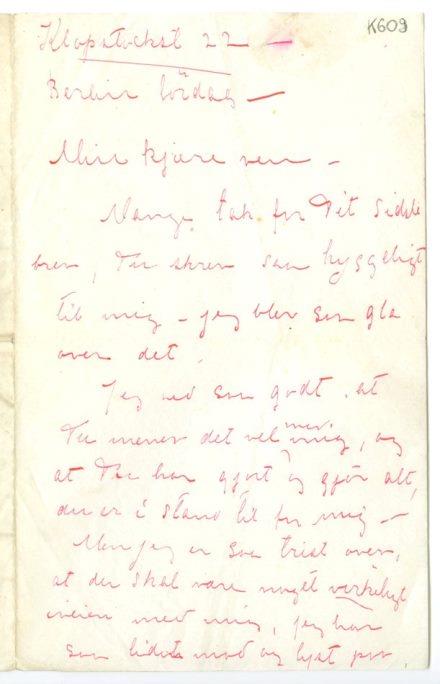 K609
Klopstockst 22 —
Berlin lördag —
Min kjære ven –
Mange tak for Dit sidste
brev, Du skrev saa hyggeligt
til mig – jeg blev saa gla
over det.
Jeg ved saa godt, at
Du mener det vel med mig, og
at Du har gjort og gjör alt,
du er i stand til for mig –
Men jeg er saa trist over,
at der skal være noget verkeligt
iveien med mig, jeg har
saa lidet mod og lyst paa